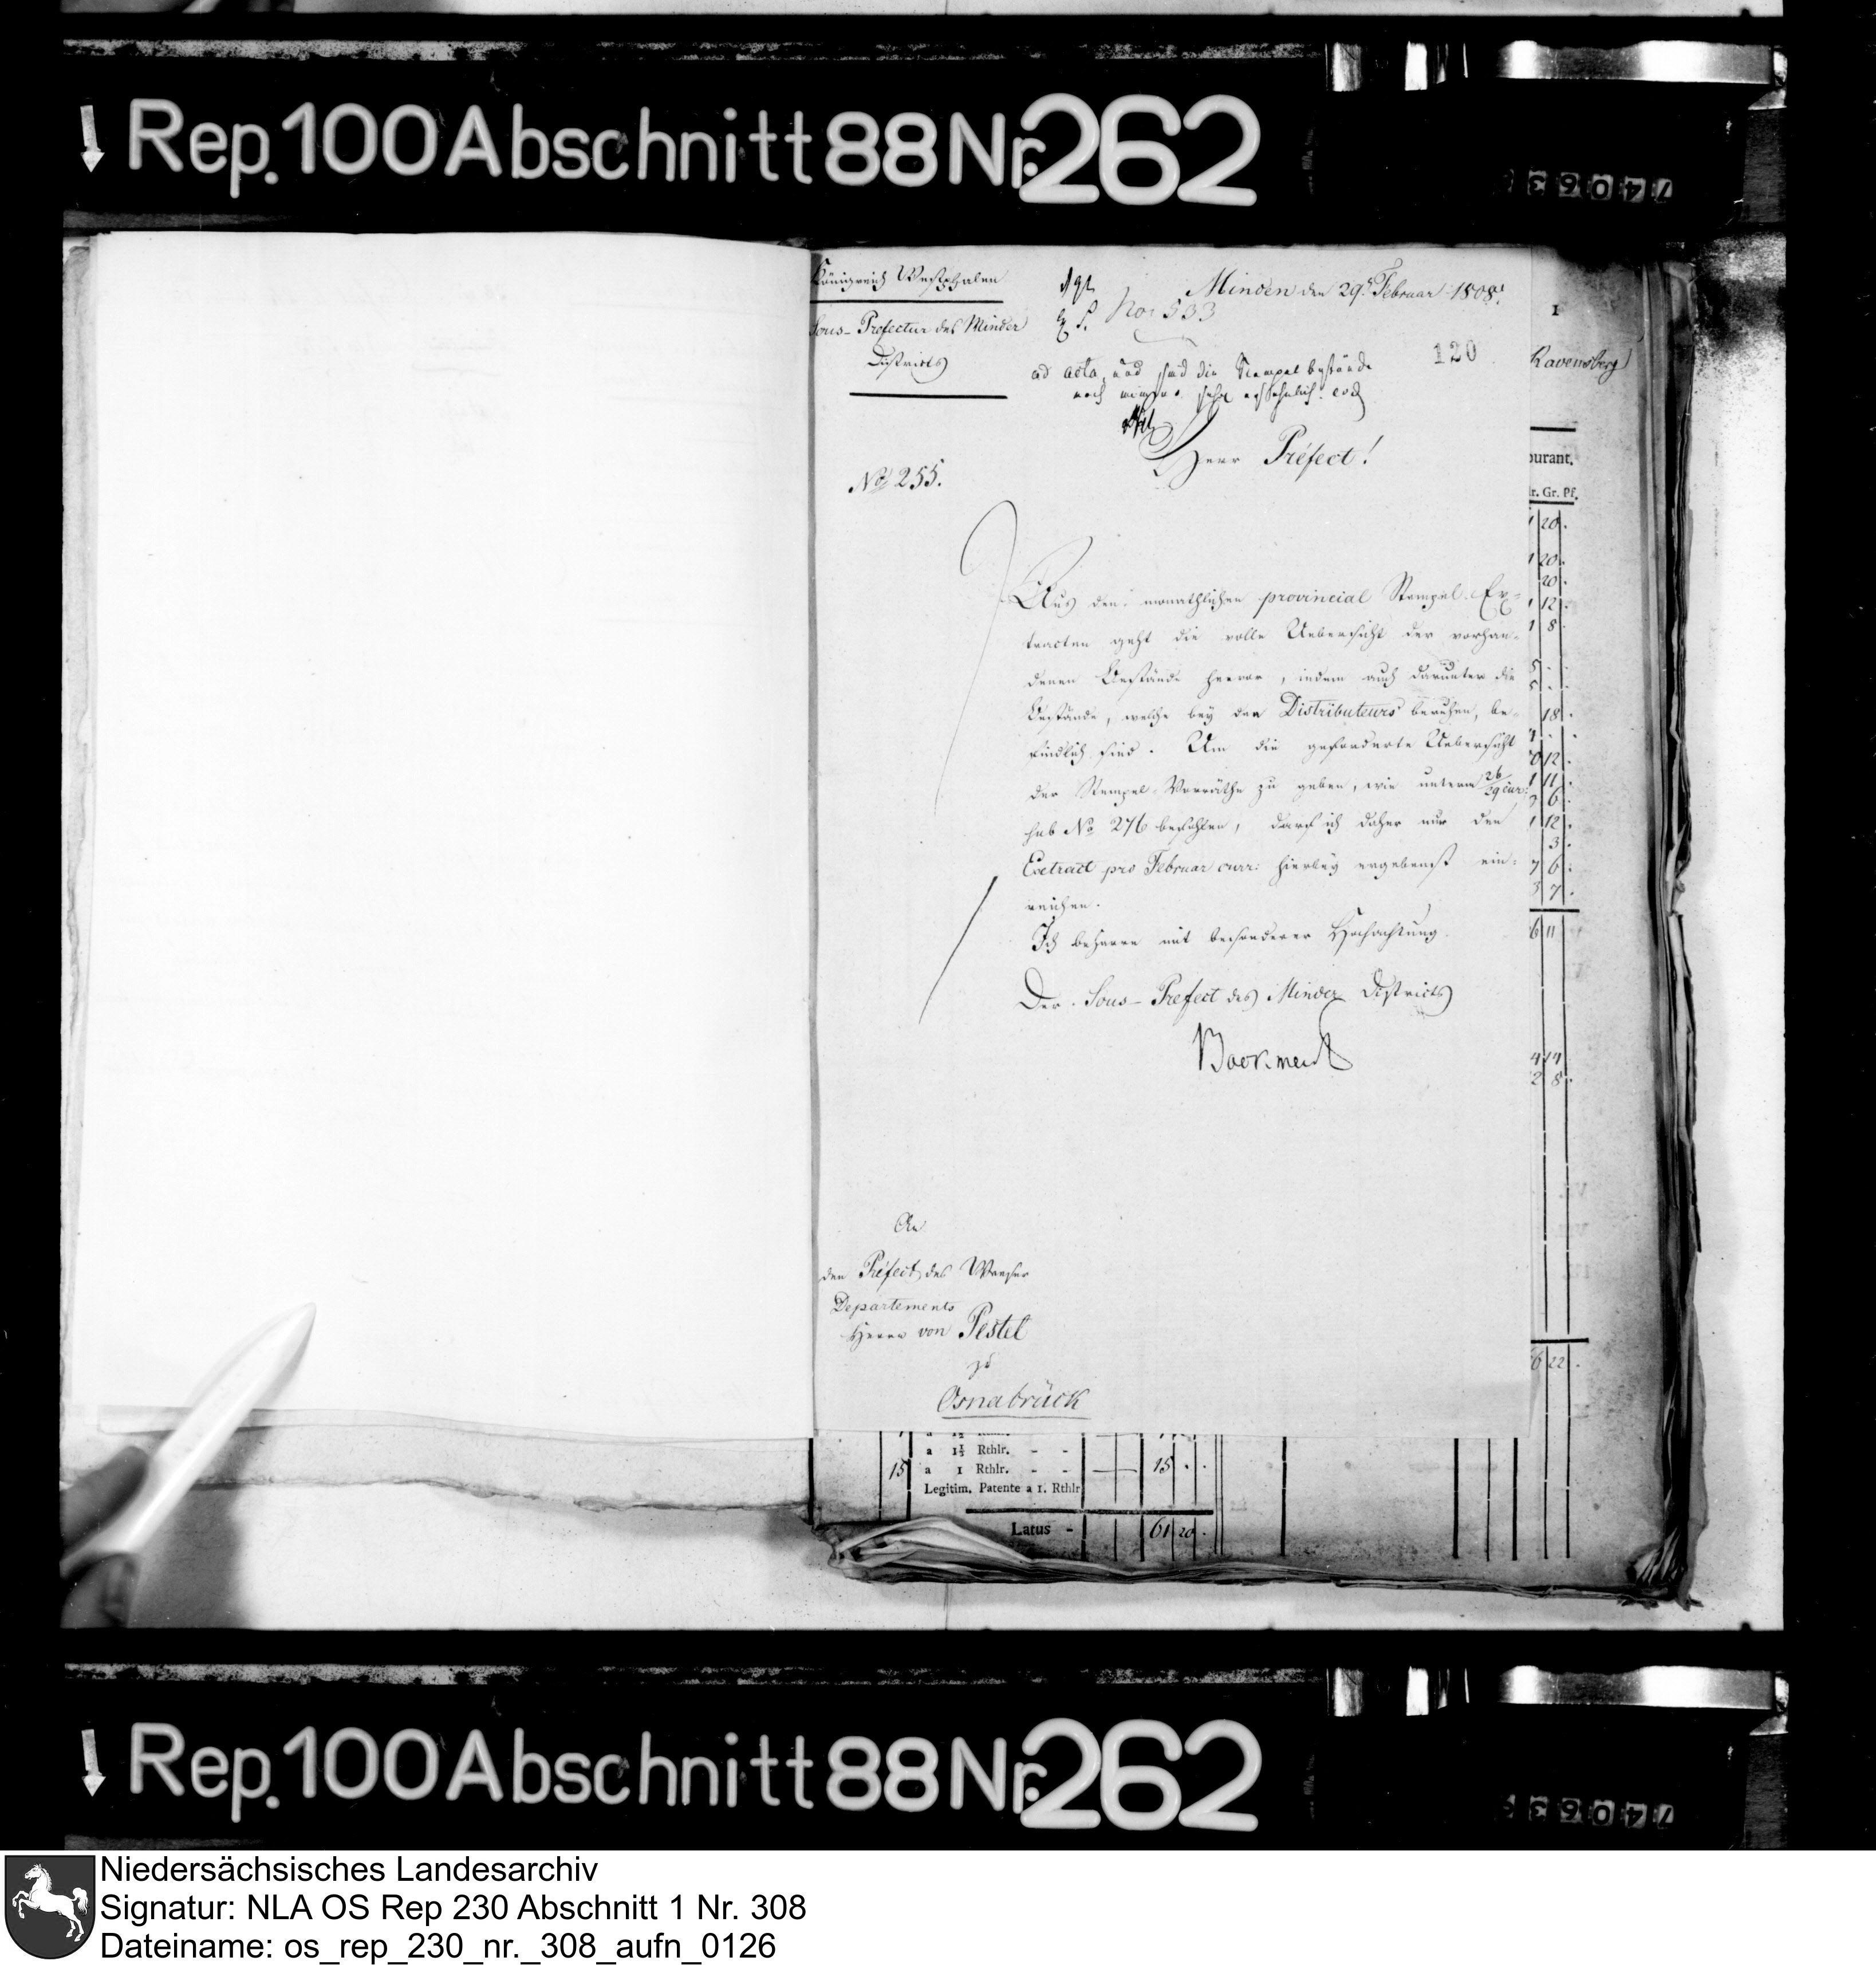 Rep. 100 Abschnitt 88 Nr. 262
Königreich Westphalen
Sous-Préfectur des Minder
Districts
Minden den 29t Februar 1808.
No 533
120
ad acta, und sind die Stempelbestände
noch immer sehr ansehnlich. eod
Herr Préfect!
No 255.
Aus den monathlichen provincial Stempel-Ex-
tracten geht die volle Uebersicht der vorhan-
denen Bestände hervor, indem auch darunter die
Bestände, welche bey den Distributeurs beruhen, be-
findlich sind. Um die geforderte Uebersicht
der Stempel-Vorräthe zu geben, wie unterm 26/29 cur:
sub No 276 befohlen, darf ich daher nur den
Extract pro Februar curr: hierbey ergebenst ein-
reichen.
Ich beharre mit besonderer Hochachtung.
Der Sous-Préfect des Minder Districts
An
den Préfect des Weeser
Departements
Herrn von Pestel
zu
Osnabrück
1
Ravensberg
ourant.
lr. Gr. Pf.
a 1½ Rthlr. - -
15 a 1 Rthlr. - - 15 . .
Legitim. Patente a 1. Rthlr
Latus - 61 20 .
Rep. 100 Abschnitt 88 Nr. 262
Niedersächsisches Landesarchiv
Signatur: NLA OS Rep 230 Abschnitt 1 Nr. 308
Dateiname: os_rep_230_nr._308_aufn_0126